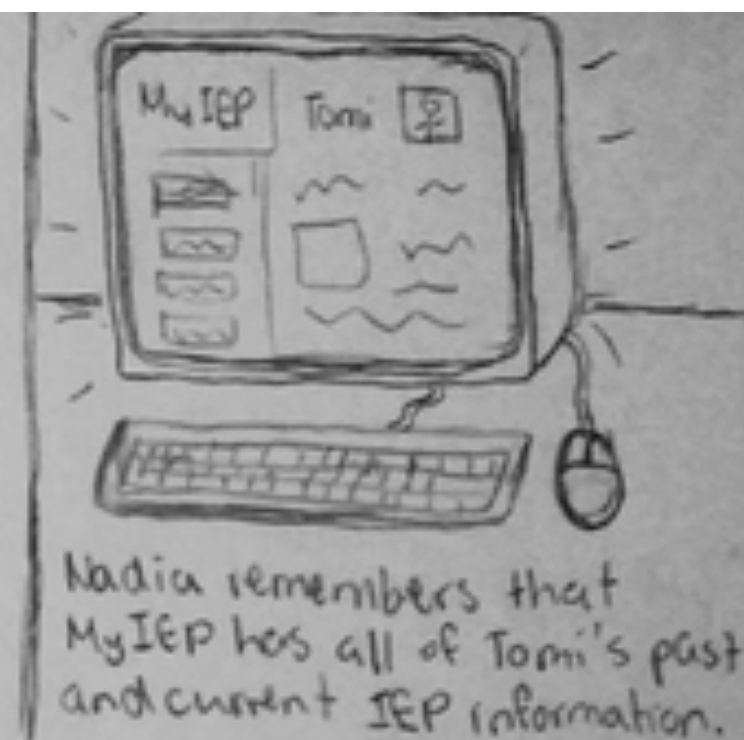 My IEP Tomi
Nadia remembers that
MyIEP has all of Tomi's past
and current IEP information.